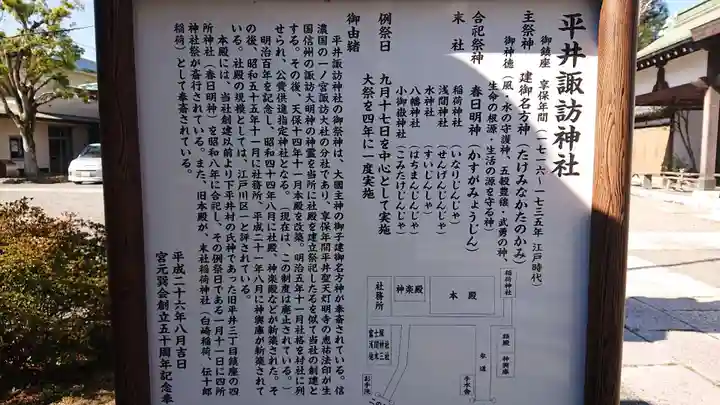 平井諏訪神社
御鎮座 享保年間(一七一六〜一七三五年 江戸時代)
主祭神 建御名方神(たけみなかたのかみ)
御神徳(風・水の守護神、五穀豊穣・武勇の神、
生命の根源・生活の源を守る神)
合祀祭神 春日明神(かすがみょうじん)
末社 稲荷神社(いなりじんじゃ)
浅間神社(せんげんじんじゃ)
水神社(すいじんじゃ)
八幡神社(はちまんじんじゃ)
小御嶽神社(こみたけじんじゃ)
例祭日 九月十七日を中心として実施
大祭を四年に一度実施
御由緒
平井諏訪神社の御祭神は、大國主神の御子建御名方神が奉斎されている。信
濃国の一ノ宮諏訪大社の分社であり、享保年間平井聖天灯明寺の恵祐法印が生
国信州の諏訪大明神の神霊を当所に社殿を建立祭祀したるを似て当社の創建と
する。その後、天保十四年十一月本殿を改築。明治五年十一月社格を村社に列
せられ、公費供進指定神社となる。(現在は、この制度は廃止されている。)
明治百年を記念し、昭和四十四年八月に社殿、神楽殿などが新築された。そ
の後、昭和五十五年十一月に社務所、平成二十一年八月に神輿庫が新築されて
いる。社殿の規模としては、江戸川区一と評されている。
本殿には、当社創建以前より下平井村の氏神であった旧平井三丁目鎮座の四
所神社(春日明神)を昭和八年に合祀し、その例祭日である一月十一日に四所
神社祭が斎行されている。また、旧本殿が、末社稲荷神社(白崎稲荷、伝十郎
稲荷)として奉斎されている。
平成二十六年八月吉日
宮元巽会創立五十周年記念奉
稲荷神社
本殿
神楽殿
社務所
神輿庫
参道
手水舎
富士塚
浅間神社